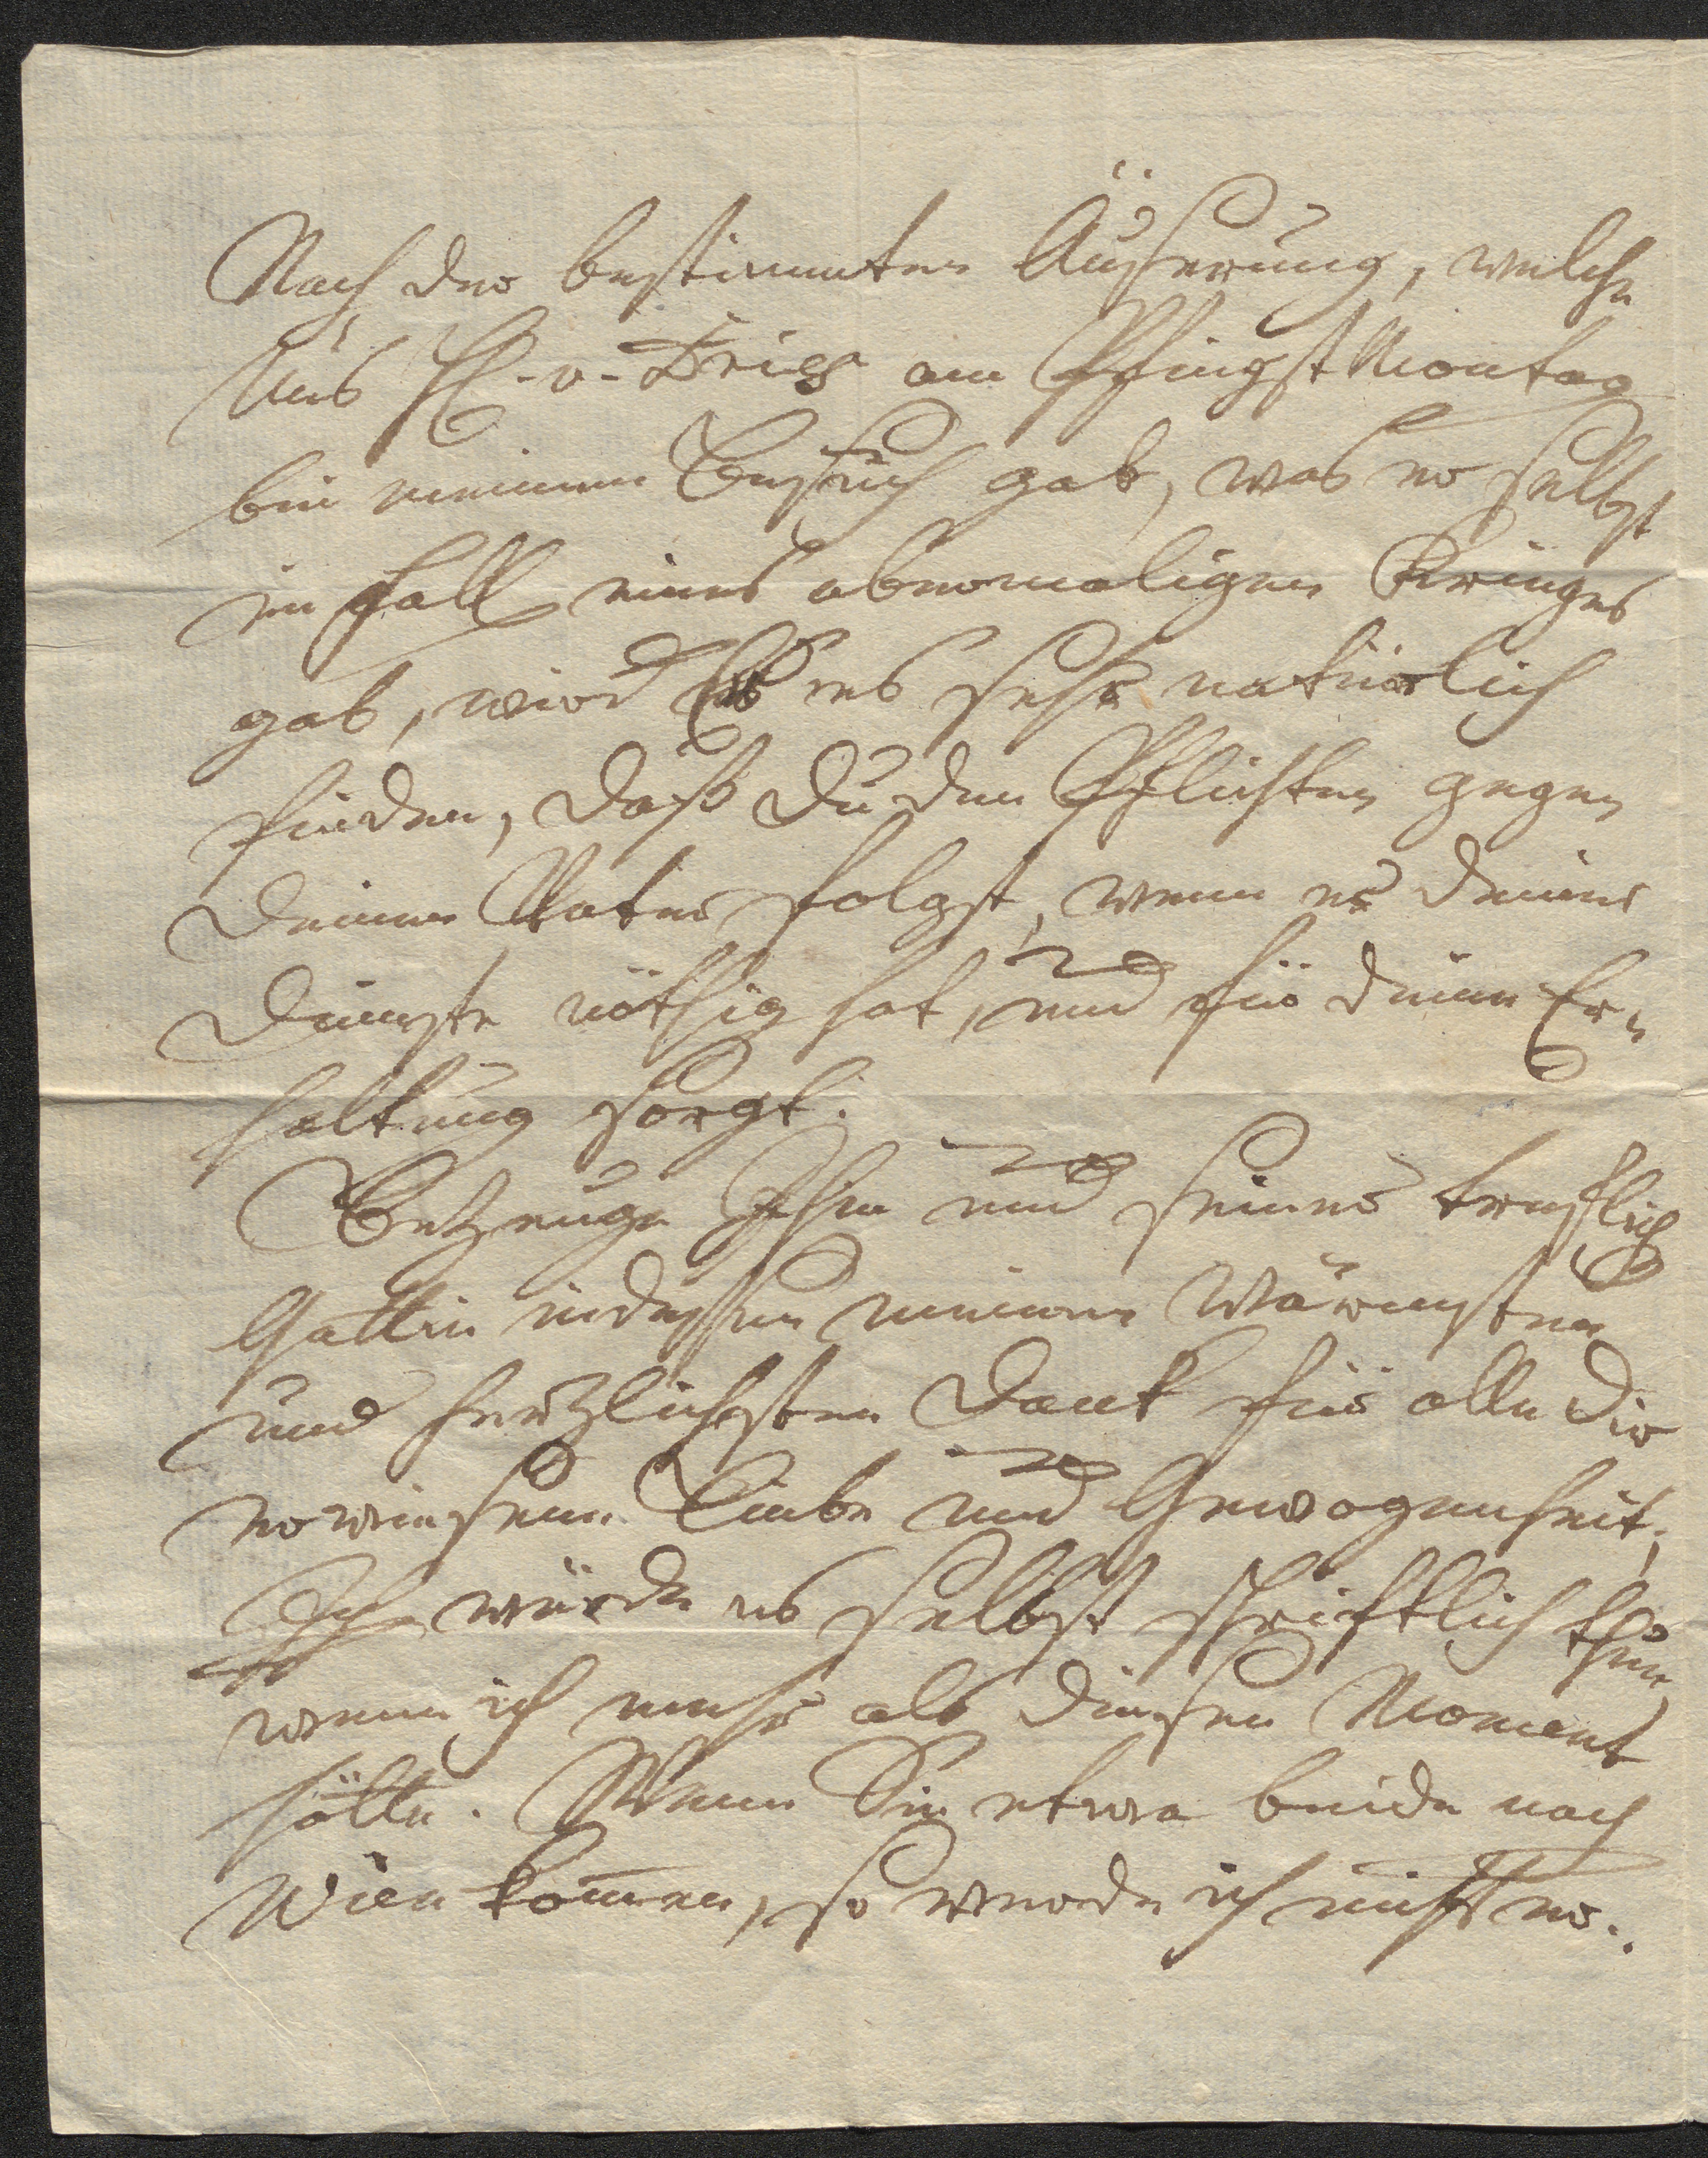 Nach der bestimmten Äußerung, welche
Uns H. v. Dries am Pfingst Montag
bei meinem Besuch gab, was er selbst
im Fall eines abermaligen Krieges
gab, wird Er es sehr natürlich
finden, daß Du den Pflichten gegen
Deinen Vater folgst, wenn er Deine
Dienste nöthig hat, und für Deine Er-
haltung sorgt.
Bezeuge Ihm und seiner trefflich
Gattin indessen meinen wärmsten
und herzlichsten Dank für alle Dir
erwiesene Liebe und Gewogenheit;
Ich würde es selbst schriftlich thun,
wenn ich mehr als diesen Moment
hätte. Wenn Sie etwa beide nach
Wien kom̄en, so werde ich nicht er-